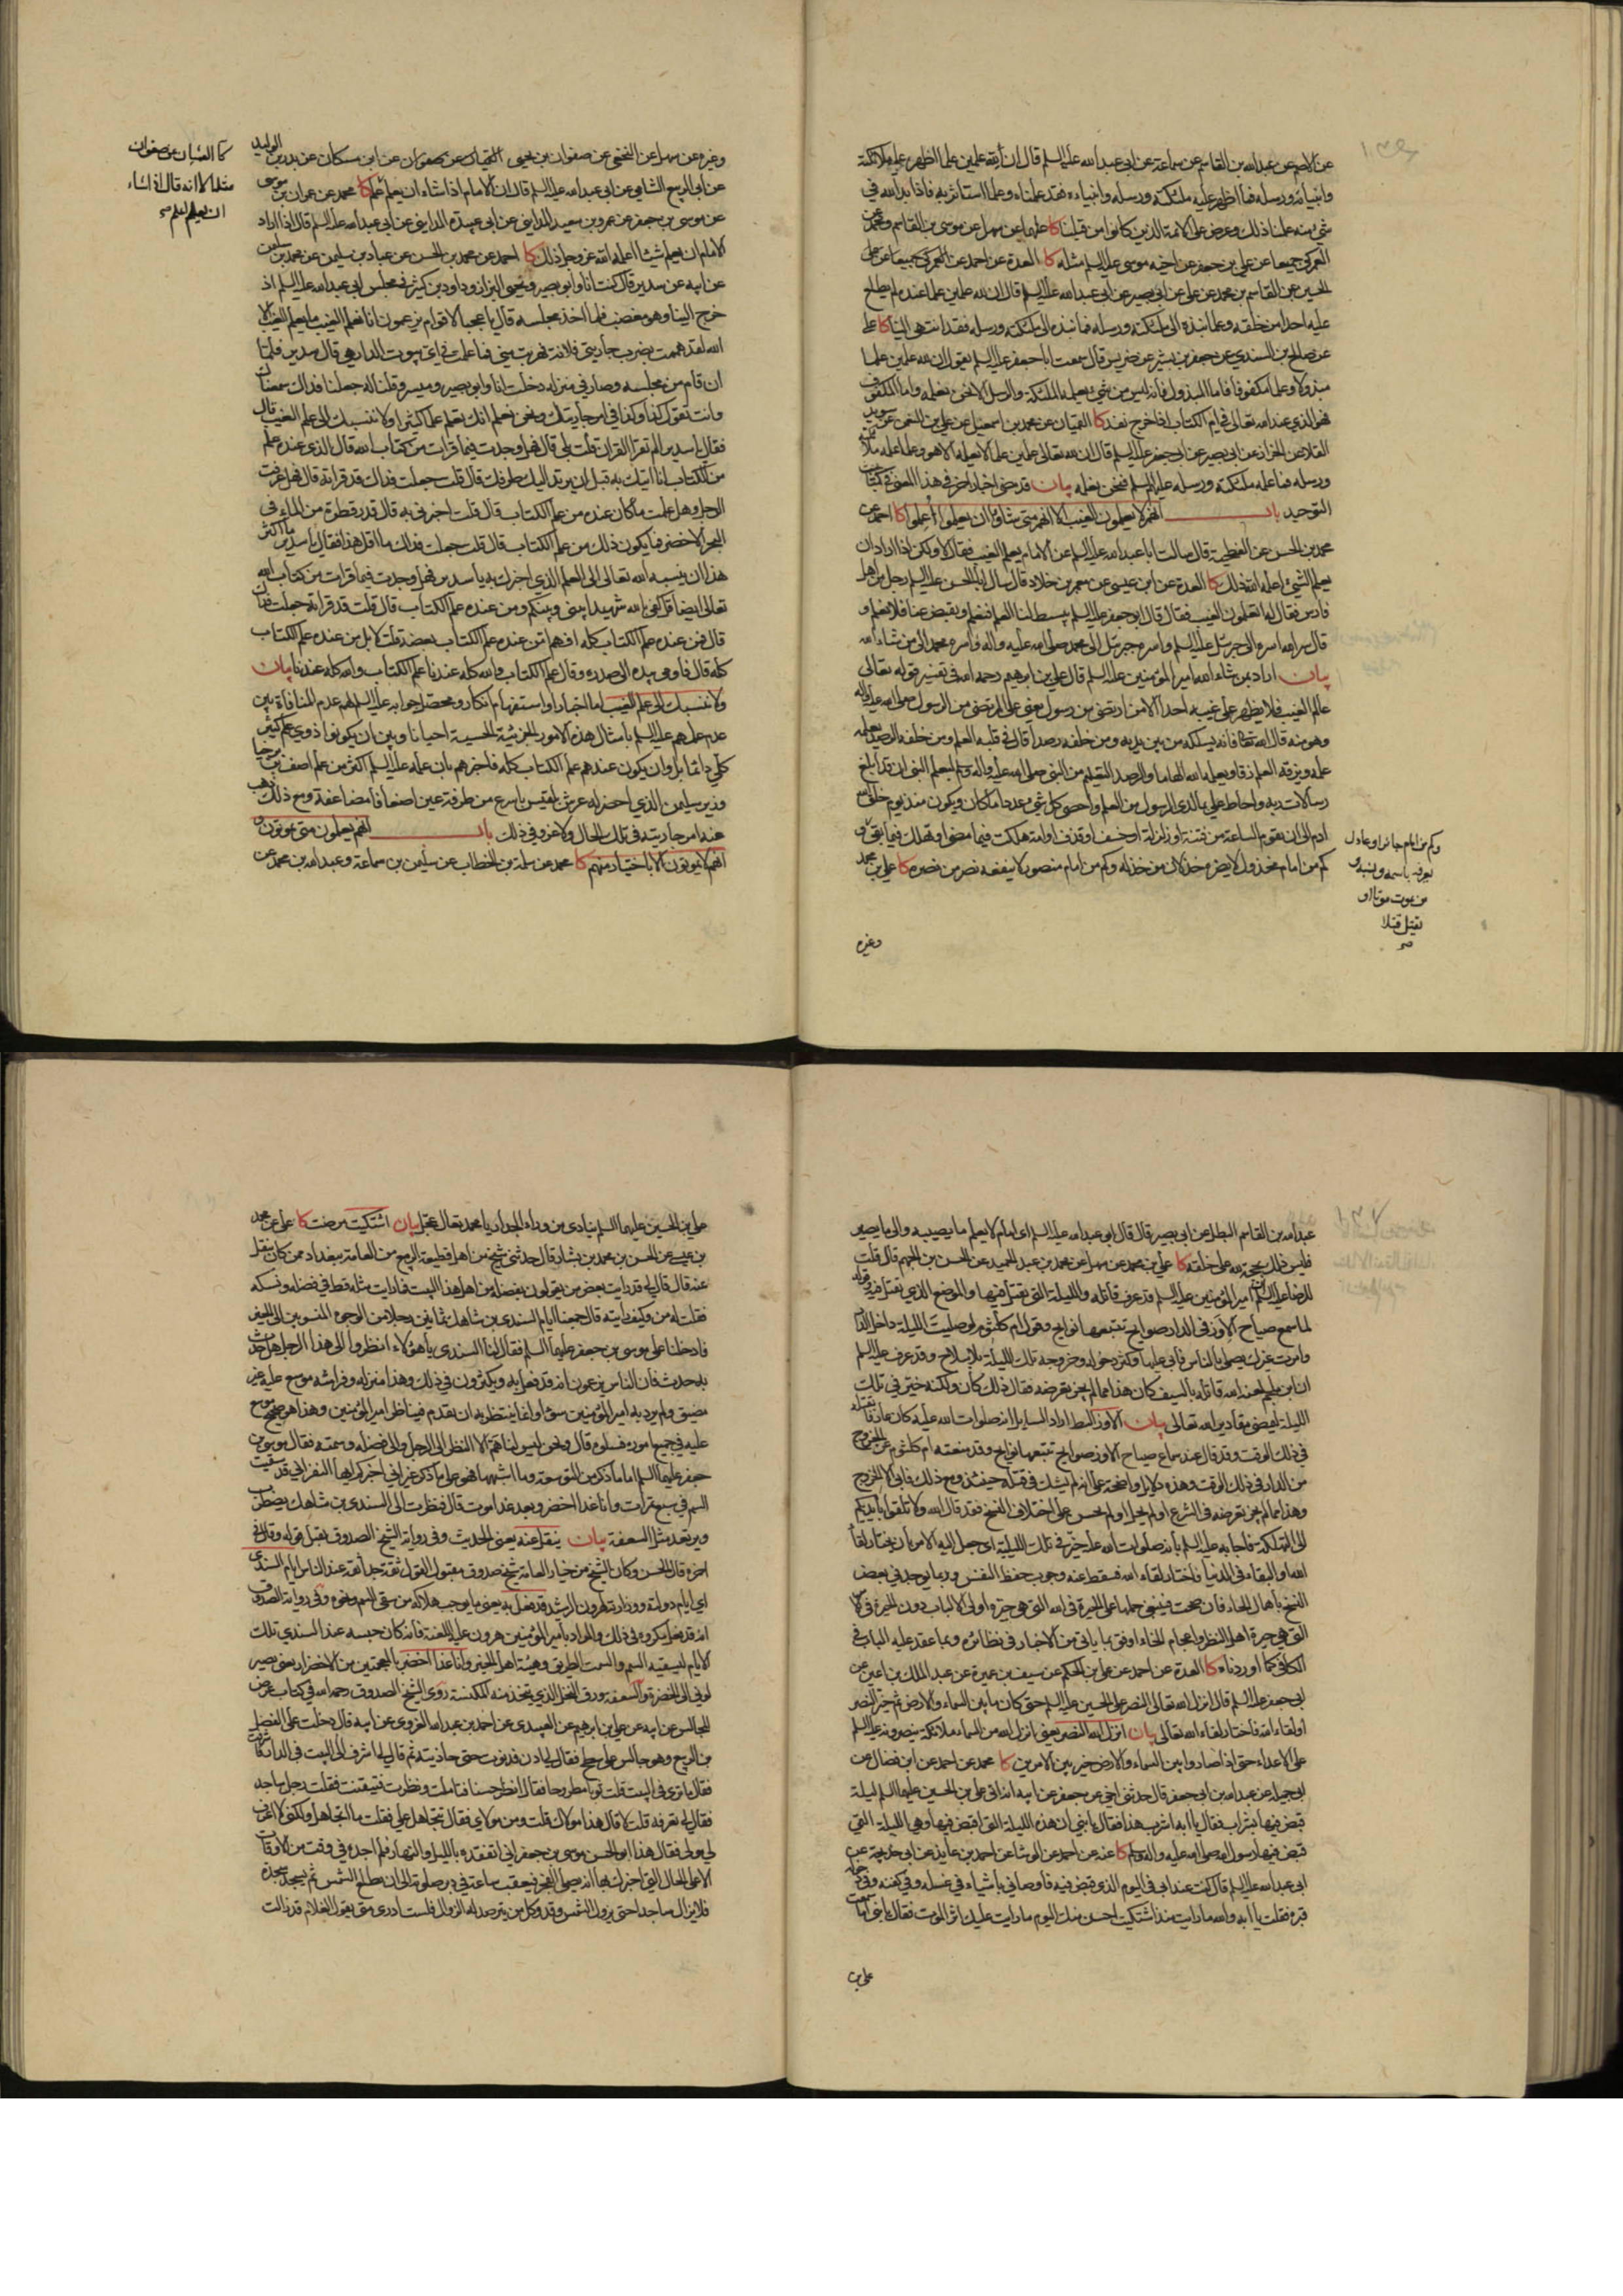 عن الاصم عن عبد الله بن القاسم عن سماعة عن ابي عبد الله عليه السلم قال ان لله علمين علما اظهر عليه ملائكته
وانبيائه ورسله فما اظهر عليه ملئكته ورسله وانبياءه فقد علمناه وعلما استأثر به فاذا بدا لله في
شئ منه علمنا ذلك وعرض على الائمة الذين كانوا من قبلنا كا علي عن سهل عن موسى بن القاسم ومحمد عن
العمركي جميعا عن علي بن جعفر عن اخيه موسى عليه السلم مثله كا العدة عن احمد عن
الحسين عن القاسم بن محمد عن علي عن ابي بصير عن ابي عبد الله عليه السلم قال ان لله علمين علما عنده لم يطلع
عليه احدا من خلقه وعلما نبذه الى ملئكته ورسله فما نبذه الى ملئكته ورسله فقد انتهى الينا كا علي
عن صالح بن السندي عن جعفر بن بشير عن ضريس قال سمعت ابا جعفر عليه السلم يقول ان لله علمين علما
مبذولا وعلما مكفوفا فاما المبذول فانه ليس من شئ يعلمه الملئكة والرسل الا نحن نعلمه واما المكفوف
فهو الذي عند الله تعالى في ام الكتاب اذا خرج نفذ كا القميان عن محمد بن اسمعيل عن علي بن النعمن عن سويد
القلا عن الخزاز عن ابي بصير عن ابي جعفر عليه السلم قال ان لله تعالى علمين علم لا يعلمه الا هو وعلم علمه ملائكته
ورسله فما علمه ملئكته ورسله عليهم السلم فنحن نعلمه بيان قد مضى اخبار اخر في هذا المعنى في كتاب
التوحيد باب انهم لا يعلمون الغيب الا انهم متى شاؤا ان يعلموا أعلموا كا احمد عن
محمد بن الحسن عن الفطحية قال سالت ابا عبد الله عليه السلم عن الامام يعلم الغيب فقال لا ولكن اذا اراد ان
يعلم الشئ اعلمه الله ذلك كا العدة عن ابن عيسى عن معمر بن خلاد قال سال ابا الحسن عليه السلم رجل من اهل
فارس فقال له اتعلمون الغيب فقال قال ابو جعفر عليه السلم يبسط لنا العلم فنعلم ويقبض عنا فلا نعلم و
قال سر الله اسره الى جبرئيل عليه السلم واسره جبرئيل الى محمد صلى الله عليه واله واسره محمد الى من شاء الله
بيان اراد بمن شاء الله امير المؤمنين عليه السلم قال علي بن ابراهيم رحمه الله في تفسير قوله تعالى
عالم الغيب فلا يظهر على غيبه احدا الا من ارتضى من رسول يعني علي المرتضى من الرسول صلى الله عليه واله
وهو منه قال الله تعالى فانه يسلك من بين يديه ومن خلفه رصدا قال في قلبه العلم ومن خلفه الرصد يعلمه
علمه ويزقه العلم زقا ويعلمه الله الهاما والرصد التعليم من النبي صلى الله عليه واله وسلم ليعلم النبي ان قد ابلغ
رسالات ربه واحاط علي بما لدى الرسول من العلم واحصى كل شئ عددا ما كان ويكون منذ يوم خلق الله
ادم الى ان تقوم الساعة من فتنة او زلزلة او خسف او قذف او امة هلكت فيما مضى او تهلك فيما بقي و
كم من امام مخذول لا يضره خذلان من خذله وكم من امام منصور لا ينفعه نصر من نصره كا علي بن محمد
وكم من امام جائر او عادل
يعرفه باسمه ونسبه و
من يموت موتا او
يقتل قتلا
صح
وغيره
وغيره عن سهل عن النخعي عن صفوان بن يحيى القميان عن صفوان عن ابن مسكان عن بدر بن الوليد
عن ابي الربيع الشامي عن ابي عبد الله عليه السلم قال ان الامام اذا شاء ان يعلم علم كا محمد عن عمران بن موسى
عن موسى بن جعفر عن عمرو بن سعيد المدايني عن ابي عبيدة المدايني عن ابي عبد الله عليه السلم قال اذا اراد
الامام ان يعلم شيئا اعلمه الله عز وجل ذلك كا احمد عن محمد بن الحسن عن عباد بن سليمن عن محمد بن سليمن
عن ابيه عن سدير قال كنت انا وابو بصير ويحيى البزاز وداود بن كثير في مجلس ابي عبد الله عليه السلم اذ
خرج الينا وهو مغضب فلما اخذ مجلسه قال يا عجبا لاقوام يزعمون انا نعلم الغيب ما يعلم الغيب الا
الله لقد هممت بضرب جاريتي فلانة فهربت مني فما علمت في اي بيوت الدار هي قال سدير فلما
ان قام من مجلسه وصار في منزله دخلت انا وابو بصير وميسر وقلنا له جعلنا فداك سمعناك
وانت تقول كذا وكذا في امر جاريتك ونحن نعلم انك تعلم علما كثيرا ولا ننسبك الى علم الغيب قال
فقال يا سدير الم تقرا القران قلت بلى قال فهل وجدت فيما قرات من كتاب الله قال الذي عنده علم
من الكتاب انا اتيك به قبل ان يرتد اليك طرفك قال قلت جعلت فداك قد قراته قال فهل عرفت
الرجل وهل علمت ما كان عنده من علم الكتاب قال قلت اخبرني به قال قدر قطرة من الماء في
البحر الاخضر فما يكون ذلك من علم الكتاب قال قلت جعلت فداك ما اقل هذا فقال يا سدير ما اكثر
هذا ان ينسبه الله تعالى الى العلم الذي اخبرك به يا سدير فهل وجدت فيما قرات من كتاب الله
تعالى ايضا قل كفى بالله شهيدا بيني وبينكم ومن عنده علم الكتاب قال قلت قد قراته جعلت فداك
قال فمن عنده علم الكتاب كله افهم ام من عنده علم الكتاب بعضه قلت لا بل من عنده علم الكتاب
كله قال فاومى بيده الى صدره وقال علم الكتاب والله كله عندنا علم الكتاب والله كله عندنا بيان
ولا ننسبك الى علم الغيب اما اخبار او استفهام انكار ومحصل جوابه عليه السلم لهم عدم المنافاة بين
عدم علمهم عليهم السلم بامثال هذه الامور الجزئية الحسية احيانا وبين ان يكونوا ذوي علم كثير
كلي دائما بل وان يكون عندهم علم الكتاب كله فاخبرهم بان علمه عليه السلم اكثر من علم اصف بن برخيا
وزير سليمن الذي احضر له عرش بلقيس باسرع من طرفة عين اضعافا مضاعفة ومع ذلك ذهب
عنه امر جاريته في تلك الحال ولا غرو في ذلك باب انهم يعلمون متى يموتون و
انهم لا يموتون الا باختيار منهم كا محمد عن سلمة بن الخطاب عن سليمن بن سماعة وعبد الله بن محمد عن
كا القميان عن صفوان
مثله الا انه قال اذا شاء
ان يعلم اعلم صح
عبد الله بن القاسم البطل عن ابي بصير قال قال ابو عبد الله عليه السلم اي امام لا يعلم ما يصيبه والى ما يصير
فليس ذلك بحجة لله على خلقه كا علي بن محمد عن سهل عن محمد بن عبد الحميد عن الحسن بن الجهم قال قلت
للرضا عليه السلم ان امير المؤمنين عليه السلم قد عرف قاتله والليلة التي يقتل فيها والموضع الذي يقتل فيه وقوله
لما سمع صياح الاوز في الدار صوايح تتبعها نوايح وقول ام كلثوم لو صليت الليلة داخل الدار
وامرت غيرك يصلي بالناس فابى عليها وكثر دخوله وخروجه تلك الليلة بلا سلاح وقد عرف عليه السلم
ان ابن ملجم لعنه الله قاتله بالسيف كان هذا مما لم يجز تعرضه فقال ذلك كان ولكنه خير في تلك
الليلة لتمضي مقادير الله تعالى بيان الاوز البط اراد السايل انه صلوات الله عليه كان عارفا بقتله
في ذلك الوقت وقد قال عند سماع صياح الاوز صوايح تتبعها نوايح وقد منعته ام كلثوم عن الخروج
من الدار في ذلك الوقت وهذه دلايل واضحة على انه لم يشك في قتله حينئذ ومع ذلك فابى الا الخروج
وهذا مما لم يجز تعرضه في الشرع او لم يحل او لم يحسن على اختلاف النسخ فقد قال الله ولا تلقوا بايديكم
الى التهلكة فاجابه عليه السلم بانه صلوات الله عليه خير في تلك الليلة اي جعل اليه الامر بان يختار لقاء
الله او البقاء في الدنيا فاختار لقاء الله فسقط عنه وجوب حفظ النفس وربما يوجد في بعض
النسخ باهمال الحاء فان صحت فينبغي حملها على الحيرة في الله التي هي حيرة اولي الالباب دون الحيرة في الامر
التي هي حيرة اهل النظر واعجام الخاء اوفق بما ياتي من الاخبار في نظائره وبما عقد عليه الباب في
الكافي كما اوردناه كا العدة عن احمد عن علي بن الحكم عن سيف بن عميرة عن عبد الملك بن اعين عن
ابي جعفر عليه السلم قال انزل الله تعالى النصر على الحسين عليه السلم حتى كان ما بين السماء والارض ثم خير النصر
او لقاء الله فاختار لقاء الله تعالى بيان انزل الله النصر يعني انزل الله من السماء ملائكة ينصرونه عليه السلم
على الاعداء حتى اذا صاروا بين السماء والارض خير بين الامرين كا محمد عن احمد عن ابن فضال عن
ابي جميلة عن عبد الله بن ابي جعفر قال حدثني اخي عن جعفر عن ابيه انه اتى علي بن الحسين عليهما السلم ليلة
قبض فيها بشراب فقال يا ابه اشرب هذا فقال يا بني ان هذه الليلة التي اقبض فيها وهي الليلة التي
قبض فيها رسول الله صلى الله عليه واله وسلم كا عنه عن احمد عن الوشا عن احمد بن عايذ عن ابي خديجة عن
ابي عبد الله عليه السلم قال كنت عند ابي في اليوم الذي قبض فيه فاوصاني باشياء في غسله وفي كفنه وفي دخوله
قبره فقلت يا ابه والله ما رايت منذ اشتكيت احسن منك اليوم ما رايت عليك اثر الموت فقال يا بني اما سمعت
علي بن
علي بن الحسين عليهما السلم ينادي من وراء الجدار يا محمد تعال عجل بيان اشتكيت مرضت كا علي عن محمد
بن عيسى عن الحسن بن محمد بن بشار قال حدثني شيخ من اهل قطيعة الربيع من العامة ببغداد ممن كان ينقل
عنه قال قال لي قد رايت بعض من يقولون بفضله من اهل هذا البيت فما رايت مثله قط في فضله ونسكه
فقلت له من وكيف رايته قال جمعنا ايام السندي بن شاهك ثمانين رجلا من الوجوه المنسوبين الى الخير
فادخلنا على موسى بن جعفر عليهما السلم فقال لنا السندي يا هؤلاء انظروا الى هذا الرجل هل حدث
به حدث فان الناس يزعمون انه قد فعل به ويكثرون في ذلك وهذا منزله وفراشه موسع عليه غير
مضيق ولم يرد به امير المؤمنين سوءا وانما ينتظر به ان يقدم فيناظر امير المؤمنين وهذا هو صحيح موسع
عليه في جميع اموره فسلوه قال ونحن ليس لنا هم الا النظر الى الرجل والى فضله وسمته فقال موسى بن
جعفر عليهما السلم اما ما ذكر من التوسعة وما اشبهها فهو على ما ذكر غير اني اخبركم ايها النفر اني قد سقيت
السم في سبع تمرات وانا غدا اخضر وبعد غد اموت قال فنظرت الى السندي بن شاهك يضطرب
ويرتعد مثل السعفة بيان ينقل عنه يعني الحديث وفي رواية الشيخ الصدوق يقبل قوله وقال في
اخره قال الحسن وكان الشيخ من خيار العامة شيخ صدوق مقبول القول ثقة جدا ثقة عند الناس ايام السندي
اي ايام دولته ووزارته لهرون الرشيد قد فعل به يعني ما يوجب هلاكه من سقي السم ونحوه وفي رواية الصدوق
انه قد فعل مكروه في ذلك والمراد بامير المؤمنين هرون عليه اللعنة فانه كان حبسه عند السندي تلك
الايام ليسقيه السم والسمت الطريق وهيئة اهل الخير وانا غدا اخضر بالمعجمتين من الاخضرار يعني يصير
لوني الى الخضرة والسعفة ورق النخل الذي يتخذ منه المكنسة روى الشيخ الصدوق رحمه الله في كتاب عرض
المجالس عن ابيه عن علي بن ابرهيم عن العبيدي عن احمد بن عبد الله الغروي عن ابيه قال دخلت على الفضل
بن الربيع وهو جالس على سطح فقال لي ادن فدنوت حتى حاذيته ثم قال لي اشرف الى البيت في الدار فاشرفت
فقال ما ترى في البيت قلت ثوبا مطروحا فقال انظر حسنا فتاملت ونظرت فتيقنت فقلت رجل ساجد
فقال لي تعرفه قلت لا قال هذا مولاك قلت ومن مولاي فقال تتجاهل علي فقلت ما اتجاهل ولكني لا اعرف
لي مولى فقال هذا ابو الحسن موسى بن جعفر اني اتفقده بالليل والنهار فلم اجده في وقت من الاوقات
الا على الحال التي اخبرك بها انه يصلي الفجر فيعقب ساعة في دبر صلوته الى ان تطلع الشمس ثم يسجد سجدة
فلا يزال ساجدا حتى يزول الشمس وقد وكل من يترصد له الزوال فلست ادري متى يقول الغلام قد زالت